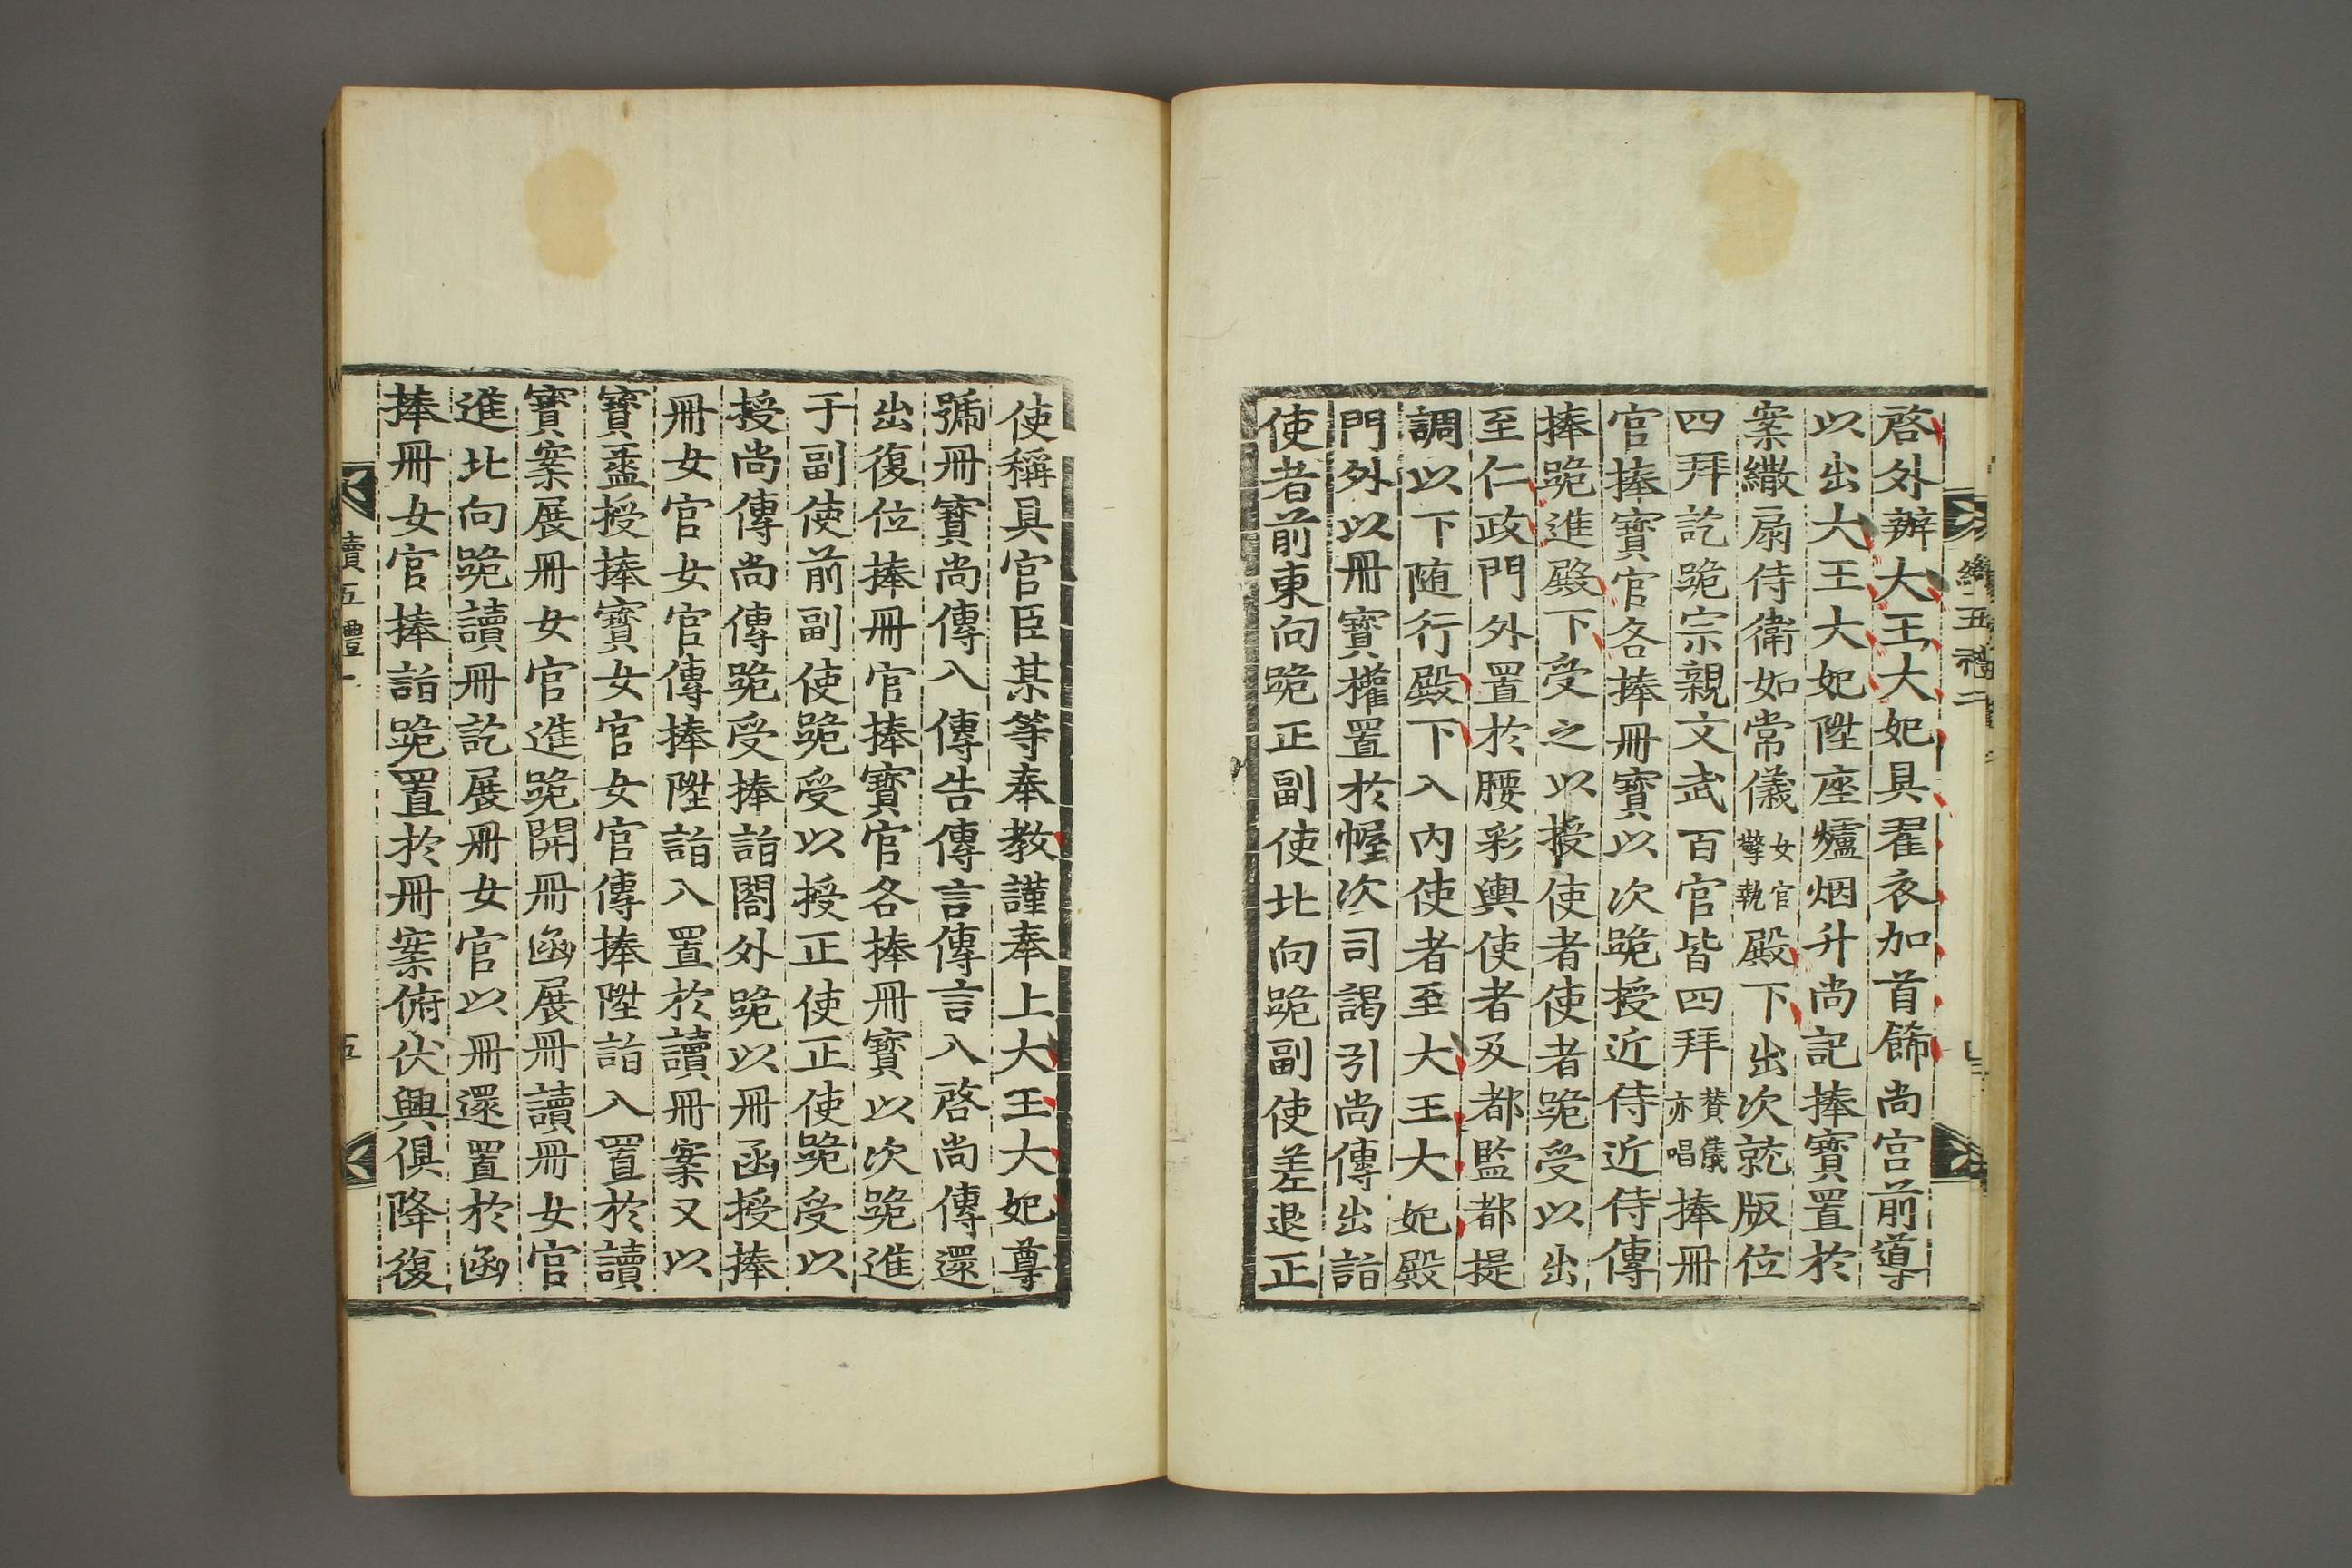 啓外辦大王大妃具翟衣加首飾尚宮前導
以出大王大妃陞座爐烟升尚記捧寶置於
案繖扇侍衛如常儀女官擎執殿下出次就版位
四拜訖跪宗親文武百官皆四拜賛儀亦唱捧冊
官捧寶官各捧冊寶以次跪授近侍近侍傳
捧跪進殿下受之以授使者使者跪受以出
至仁政門外置於腰彩輿使者及都監都提
調以下随行殿下入內使者至大王大妃殿
門外以冊寶權置於幄次司謁引尚傳出詣
使者前東向跪正副使北向跪副使差退正
使稱具官臣某等奉教謹奉上大王大妃尊
號冊寶尚傳入傳告傳言傳言入啓尚傳還
出復位捧冊官捧寶官各捧冊寶以次跪進
于副使前副使跪受以授正使正使跪受以
授尚傳尚傳跪受捧詣閤外跪以冊函授捧
冊女官女官傳捧陞詣入置於讀冊案又以
寶盝授捧寶女官女官傳捧陞詣入置於讀
寶案展冊女官進跪開冊函展冊讀冊女官
進北向跪讀冊訖展冊女官以冊還置於函
捧冊女官捧詣跪置於冊案俯伏興俱降復